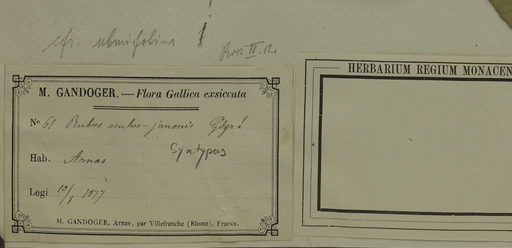 cfr. ulmifolius
Ross IX. 12.
HERBARIUM REGIUM MONACEN
M. GANDOGER. — Flora Gallica exsiccata
No 61 Rubus oculus-junonis Gdgr!
Syntypus
Hab. Arnas
Legi 10/8 1877
M. GANDOGER, Arnas, par Villefranche (Rhône), France.